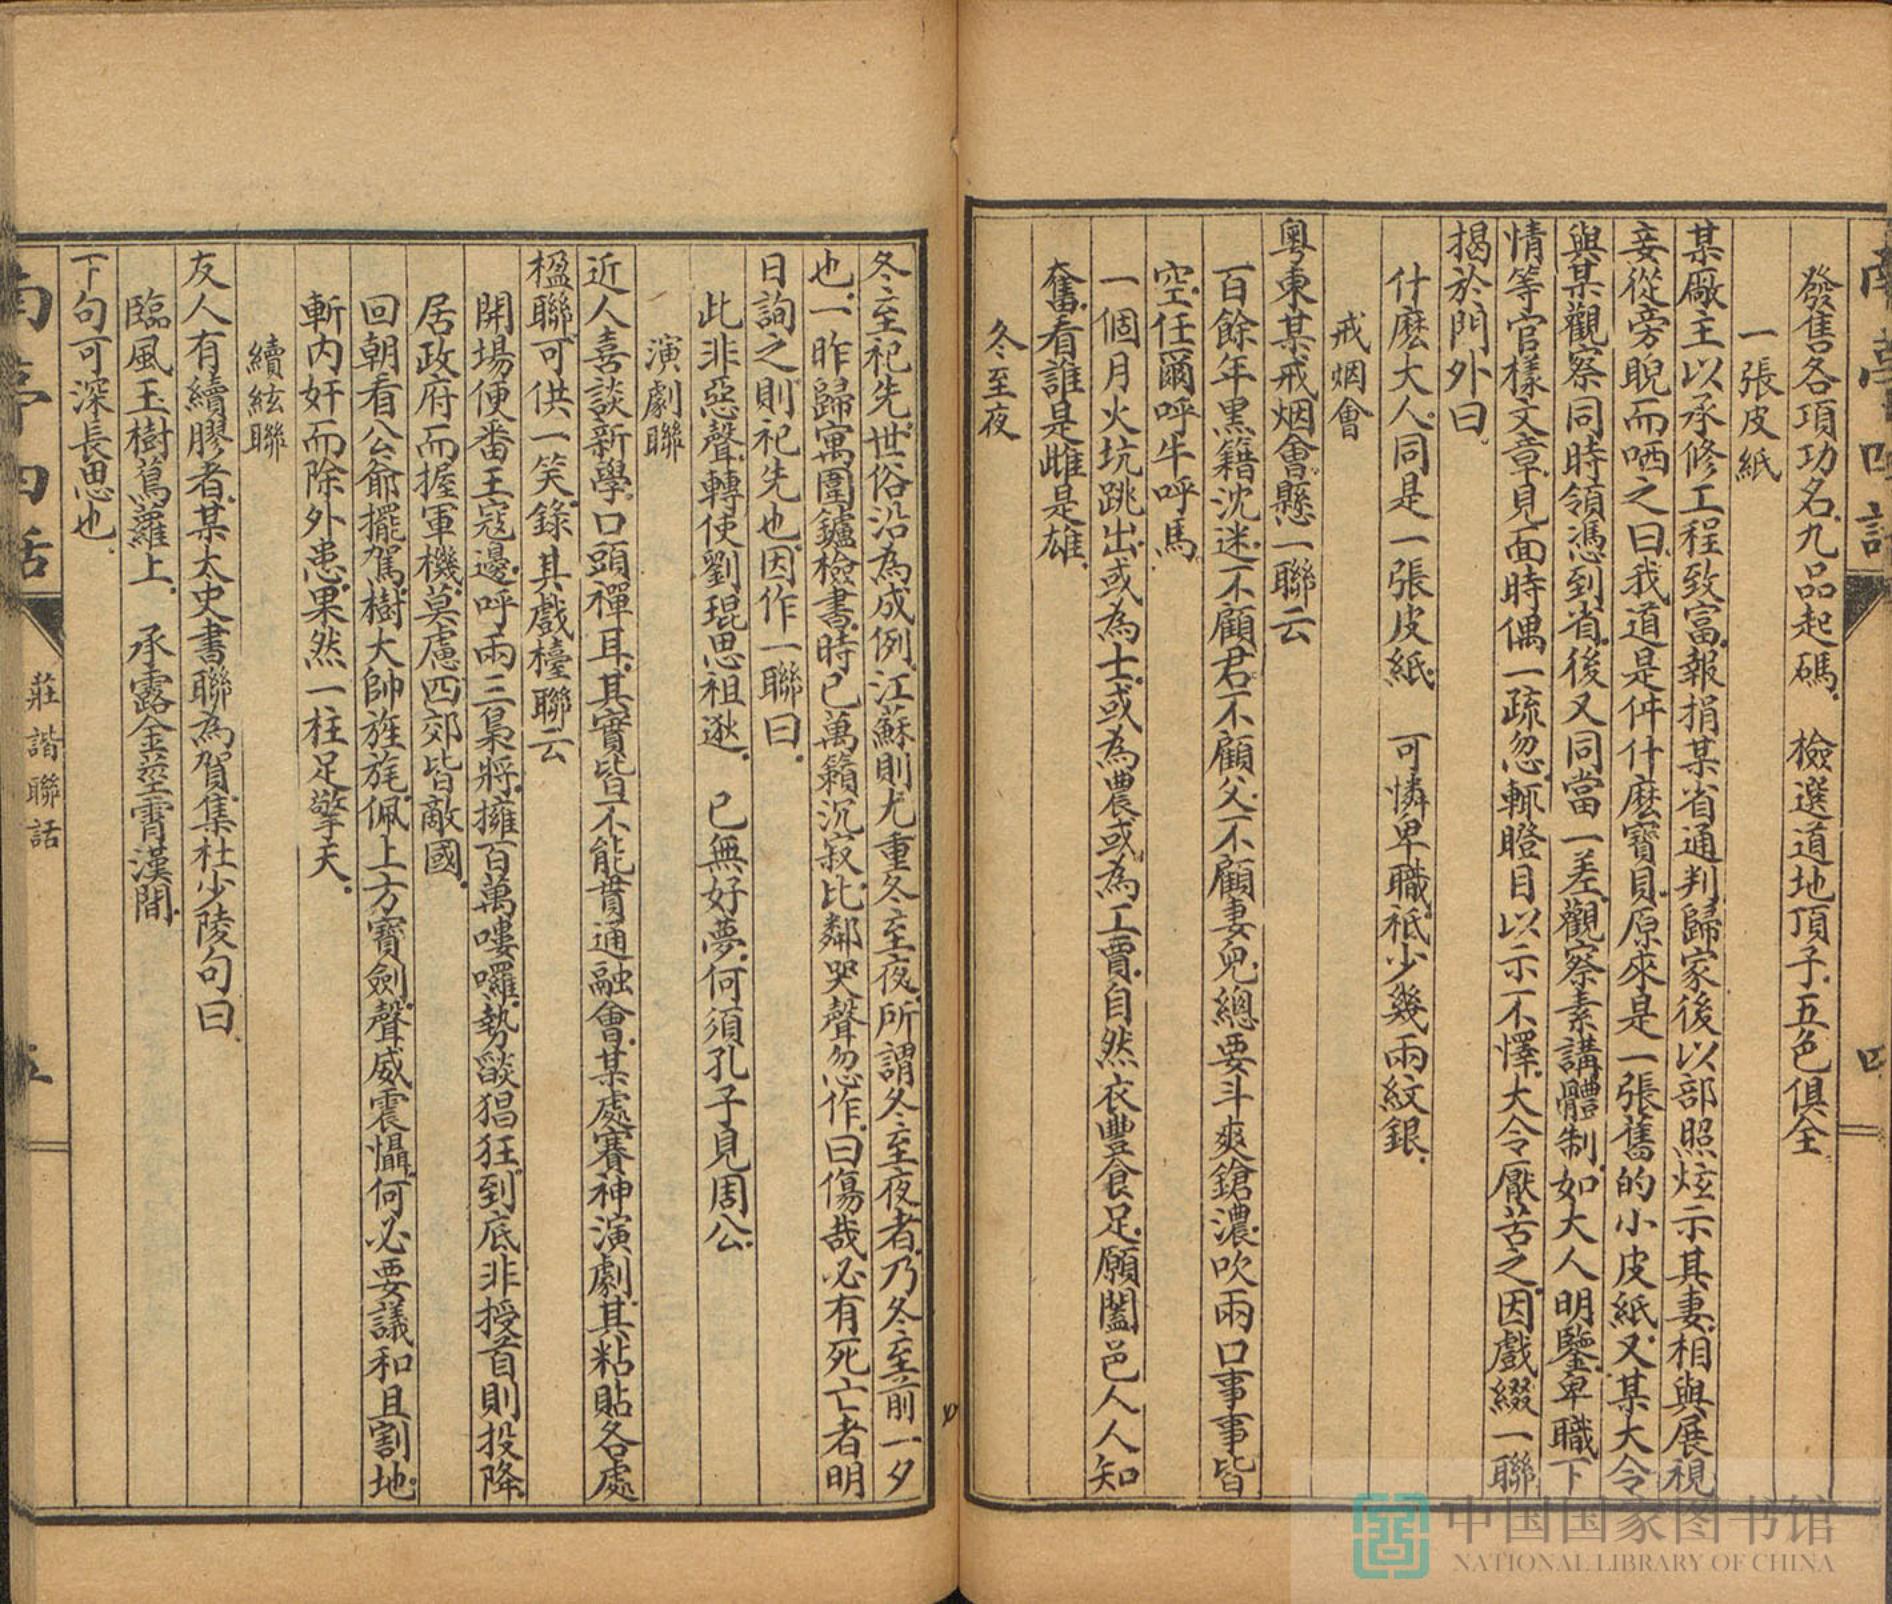 南亭四話
四
發售各項功名。九品起碼。　檢選道地頂子。五色俱全
一張皮紙
某廠主以承修工程致富。報捐某省通判歸家後以部照炫示其妻。相與展視
妾從旁睨而哂之曰。我道是件什麽寶貝。原來是一張舊的小皮紙。又某大令
與某觀察同時領憑到省。後又同當一差。觀察素講體制。如大人明鑒。卑職下
情等官樣文章。見面時偶一疏忽。輒瞪目以示不懌。大令厭苦之。因戲綴一聯
揭於門外曰。
什麽大人。同是一張皮紙。　可憐卑職。祇少幾兩紋銀。
戒烟會
粵東某戒烟會。懸一聯云
百餘年黑籍沈迷。不顧君。不顧父。不顧妻兒。總要斗爽鎗濃。吹兩口事事皆
空。任爾呼牛呼馬。
一個月火坑跳出。或為士。或為農。或為工賈。自然衣豐食足。願闔邑人人知
奮。看誰是雌是雄。
冬至夜
冬至祀先。世俗沿為成例。江蘇則尤重冬至夜。所謂冬至夜者。乃冬至前一夕
也。一昨歸寓圍鑪檢書。時已萬籟沉寂。比鄰哭聲忽作。曰傷哉。必有死亡者。明
日詢之。則祀先也。因作一聯曰。
此非惡聲。轉使劉琨思祖逖。　已無好夢。何須孔子見周公。
演劇聯
近人喜談新學。口頭禪耳。其實皆不能貫通融會。某處賽神演劇。其粘貼各處
楹聯。可供一笑。錄其戲檯聯云
開場便番王寇邊。呼兩三梟將。擁百萬嘍囉。勢燄猖狂。到底非授首則投降。
居政府而握軍機。莫慮四郊皆敵國。
回朝看公爺擺駕。樹大帥旌旄。佩上方寶劍。聲威震懾。何必要議和且割地。
斬內奸而除外患。果然一柱足擎天。
續絃聯
友人有續膠者。某太史書聯為賀。集杜少陵句曰。
臨風玉樹蔦蘿上。　承露金莖霄漢間。
下句可深長思也。
南亭四話
莊諧聯話
五
中国国家图书馆
NATIONAL LIBRARY OF CHINA